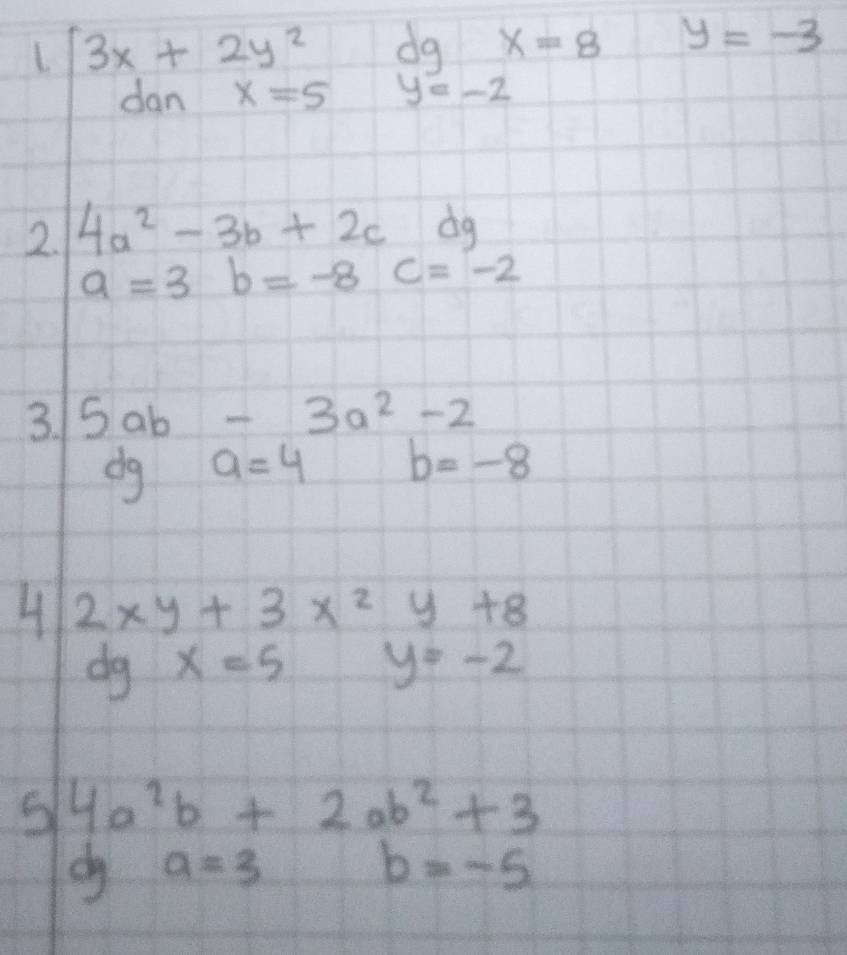 1. 3x + 2y² dg x = 8 y = -3
dan x = 5 y = -2
2. 4a² - 3b + 2c dg
a = 3 b = -8 c = -2
3. 5ab - 3a² - 2
dg a = 4 b = -8
4 2xy + 3x²y + 8
dg x = 5 y = -2
5 4a²b + 2ab² + 3
dg a = 3 b = -5